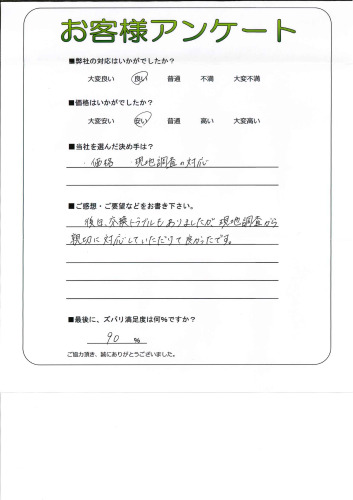 お客様アンケート
■弊社の対応はいかがでしたか?
大変良い 良い 普通 不満 大変不満
■価格はいかがでしたか?
大変安い 安い 普通 高い 大変高い
■当社を選んだ決め手は?
・価格 ・現地調査の対応
■ご感想・ご要望などをお書き下さい。
後日、交換トラブルもありましたが現地調査から
親切に対応していただけて良かったです。
■最後に、ズバリ満足度は何%ですか?
90 %
ご協力頂き、誠にありがとうございました。